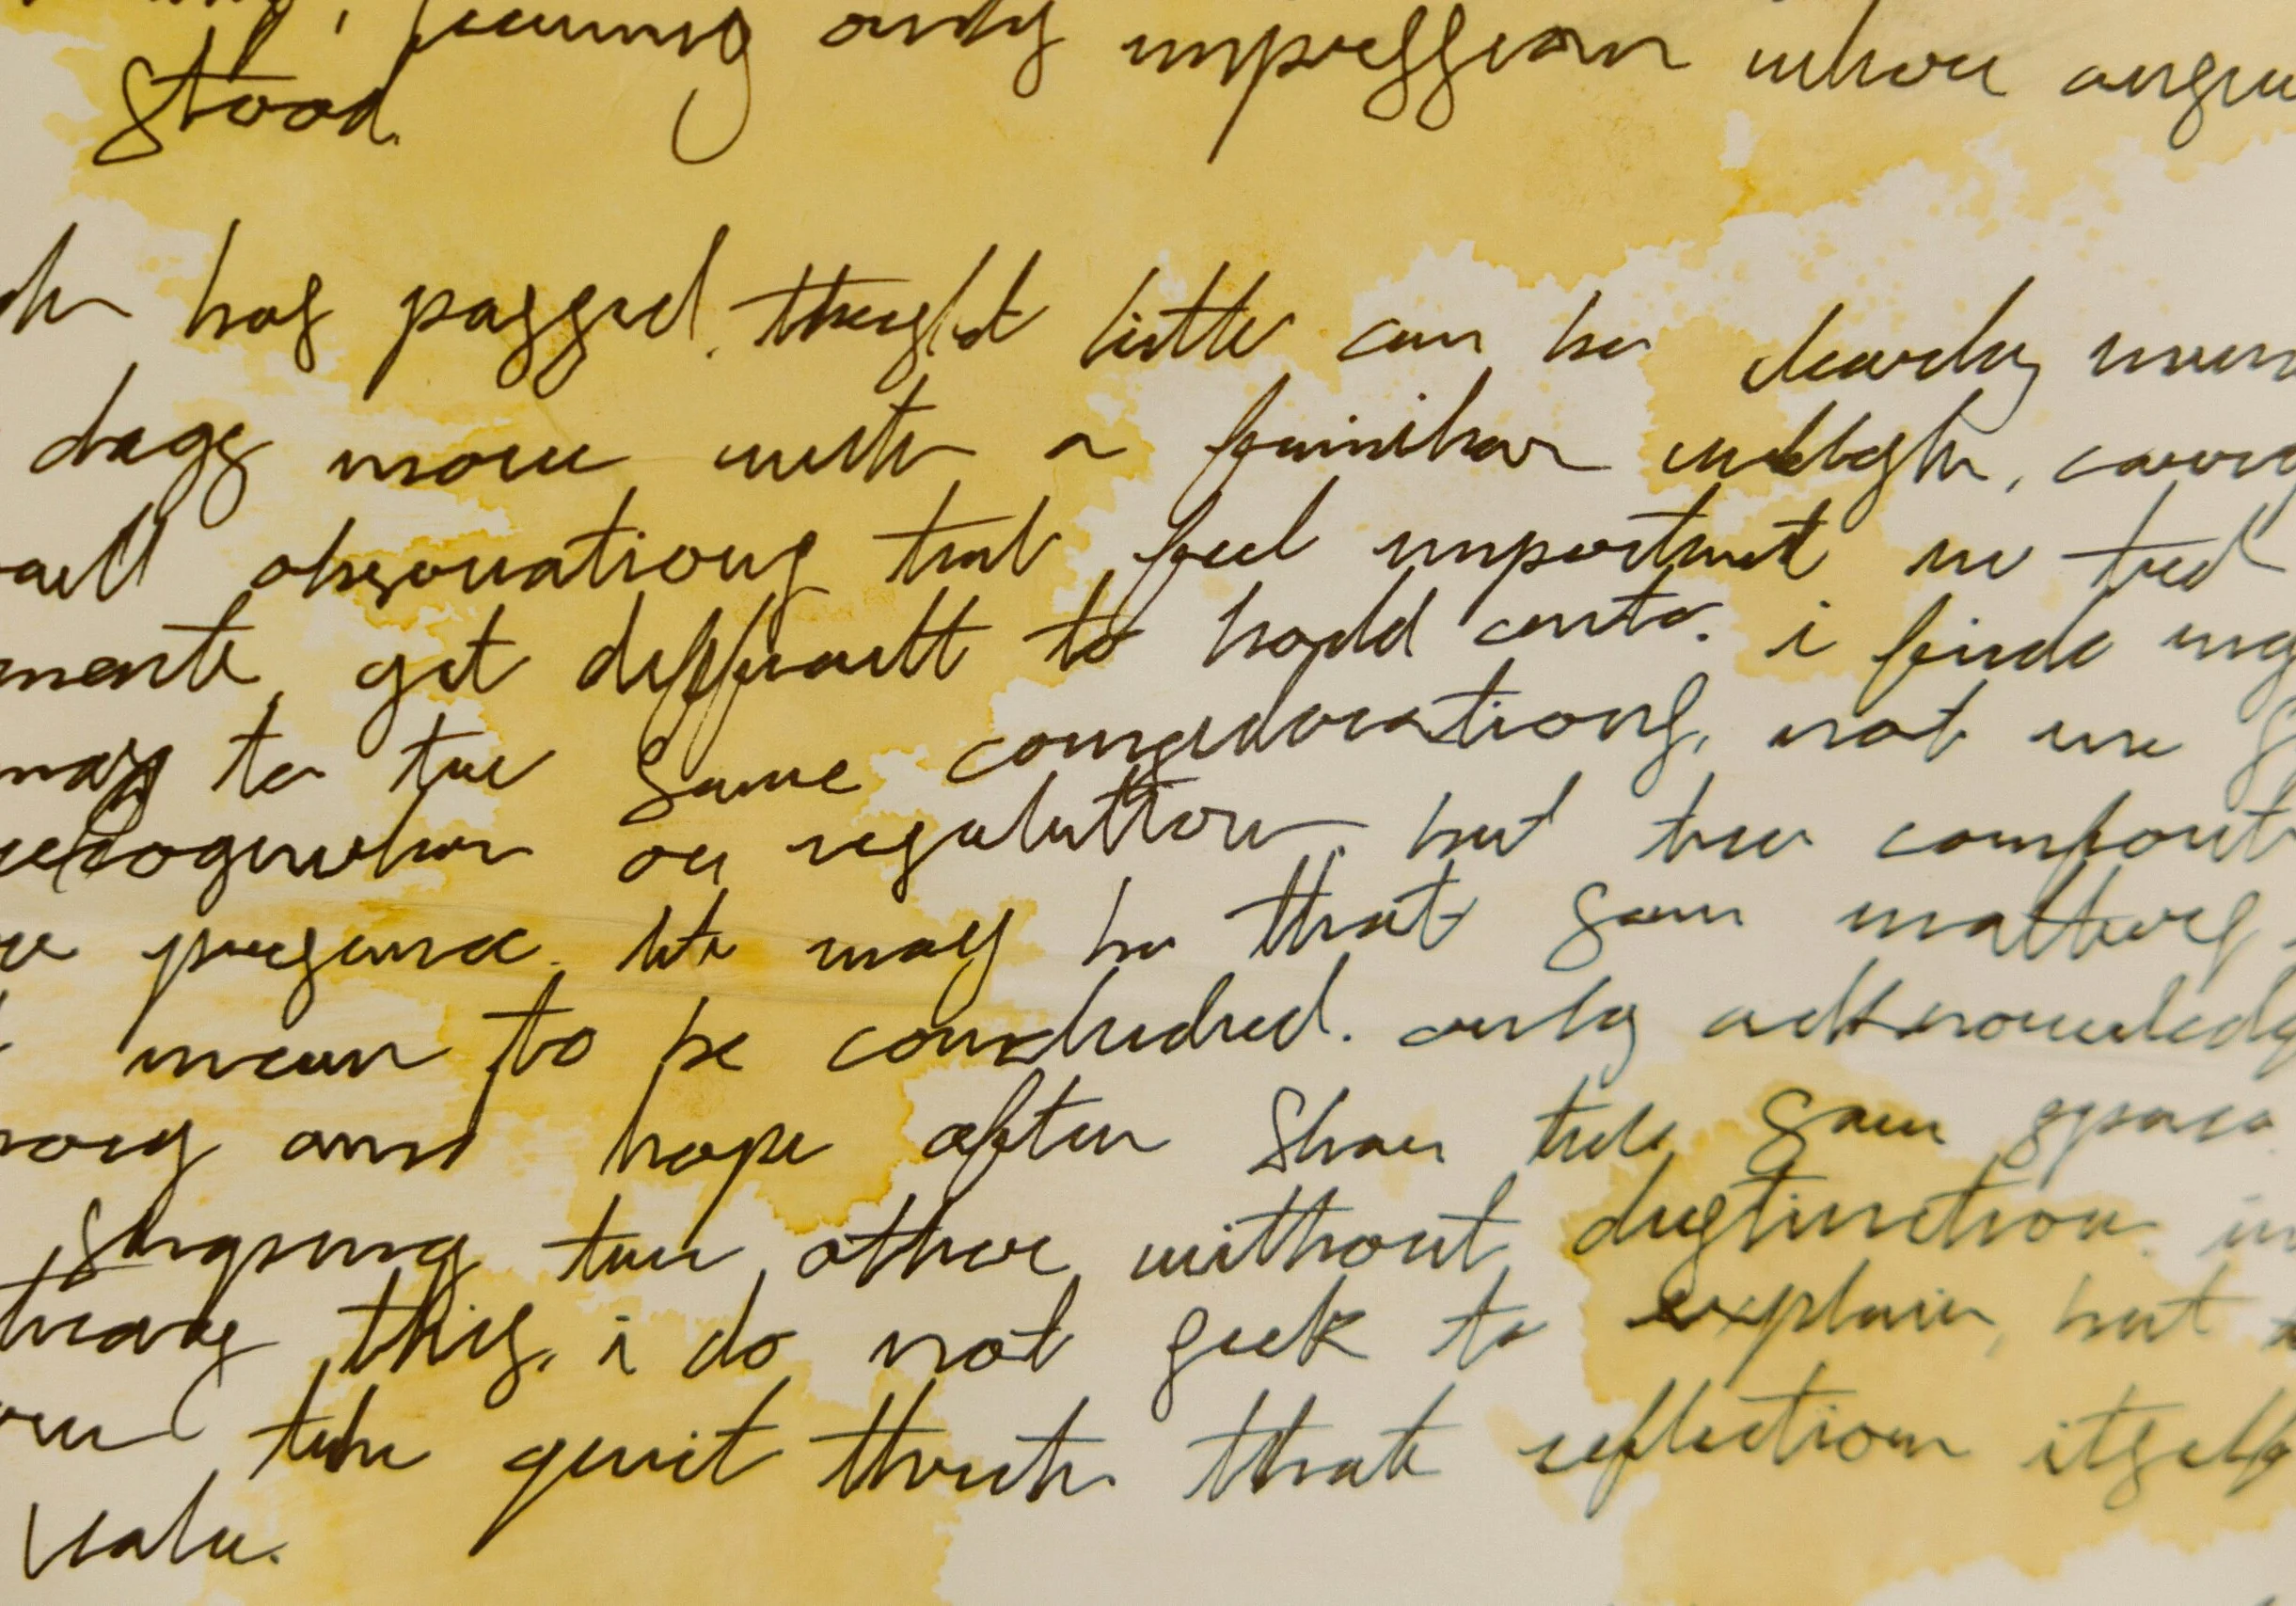 only impression where
stood.
has passed, thought little can be clearly
days move with a familiar weight,
observations that feel important in
yet difficult to hold onto. i find
to the same considerations, not in
or resolution, but the comfort
presence. it may be that some matters
mean to be concluded. only acknowledg
and hope often share the same space
shaping the other without distinction. in
this, i do not seek to explain, but
the quiet truth that reflection itself
value.